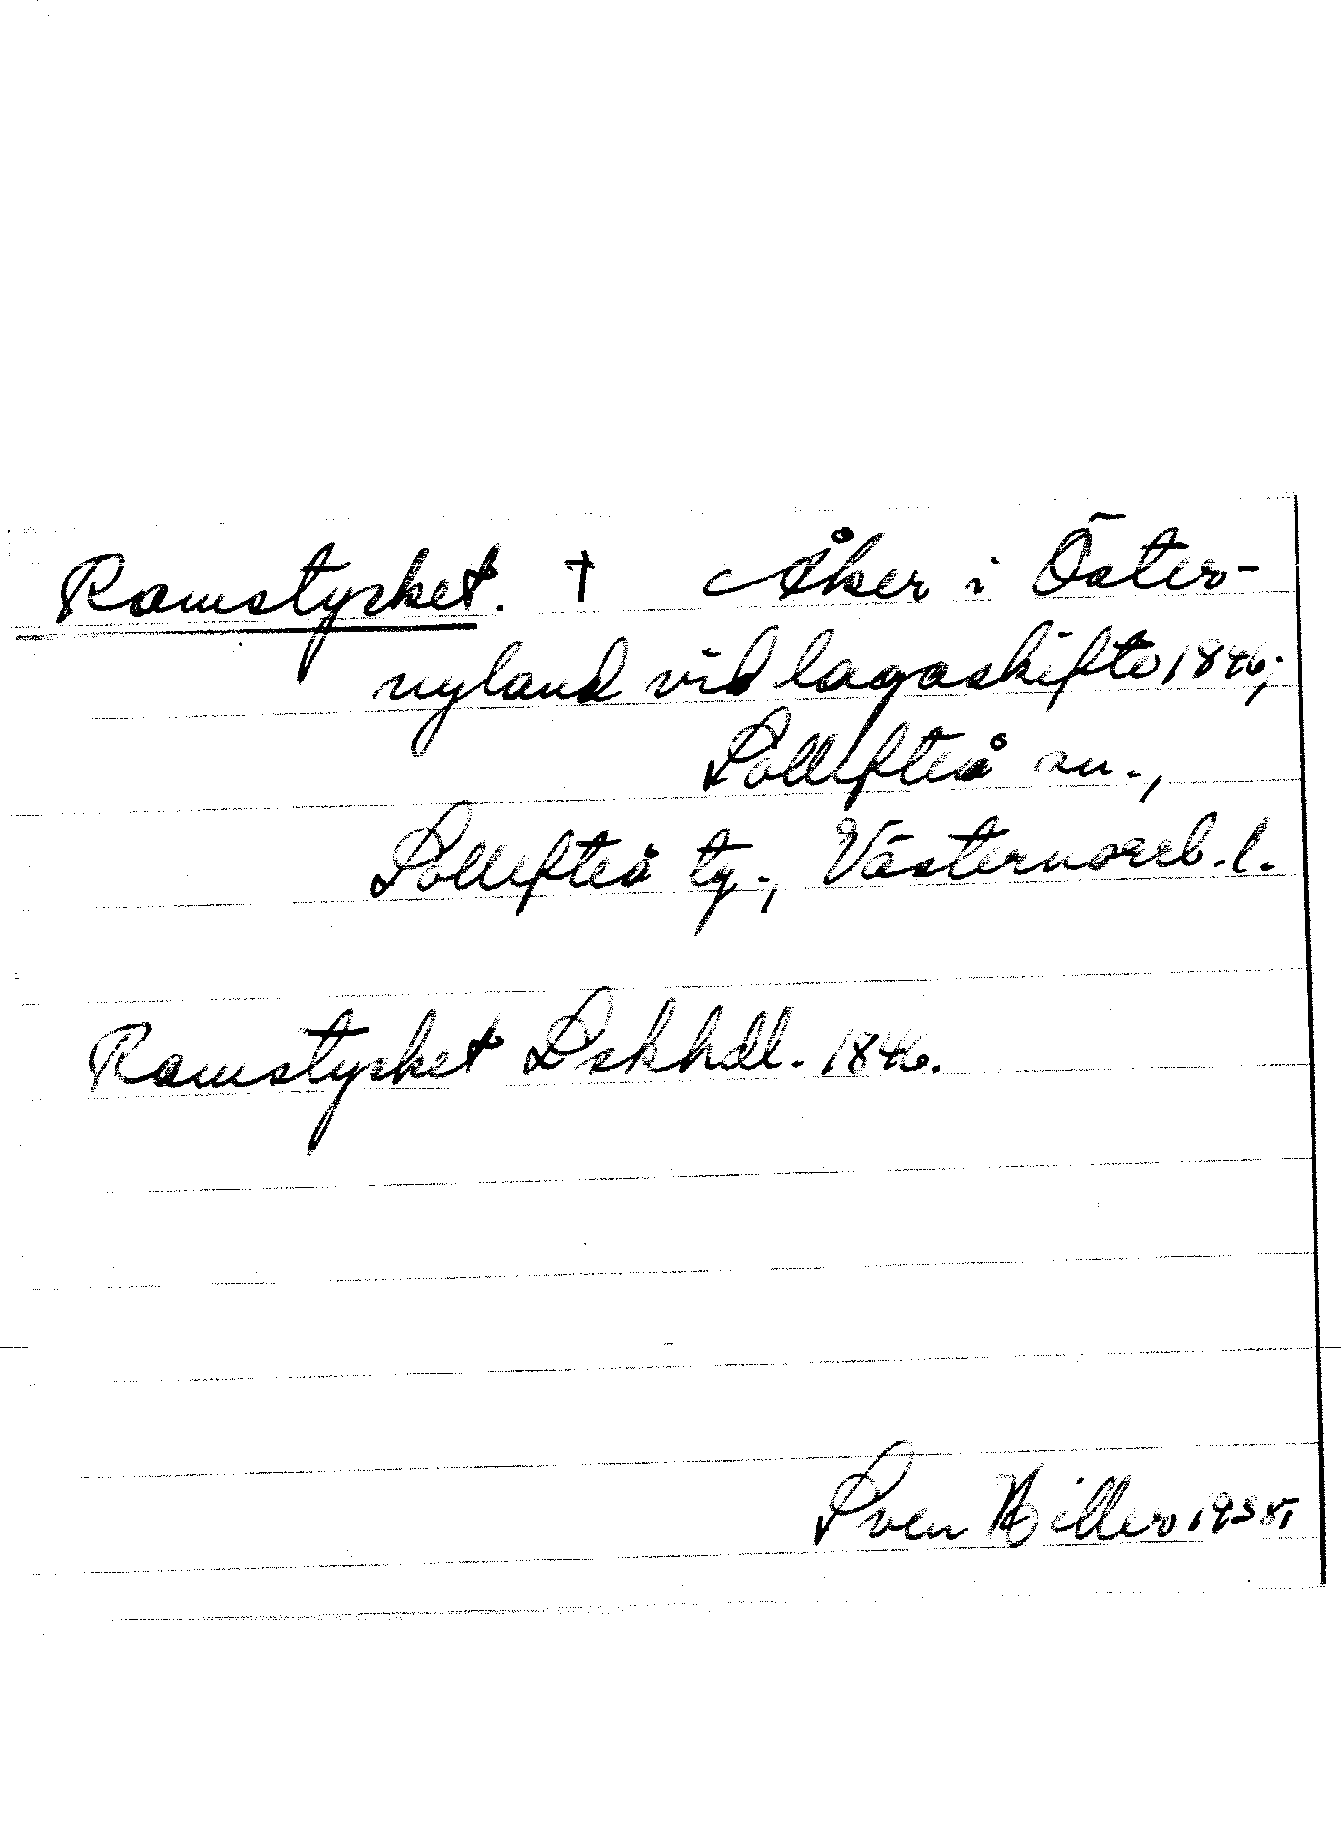 Ramstycket. † Åker i Öster-
nyland vid lagaskifte 1846;
Sollefteå sn.,
Sollefteå tg., Västernorrl. l.
Ramstycket Lskhdl. 1846.
Sven Hiller 1935